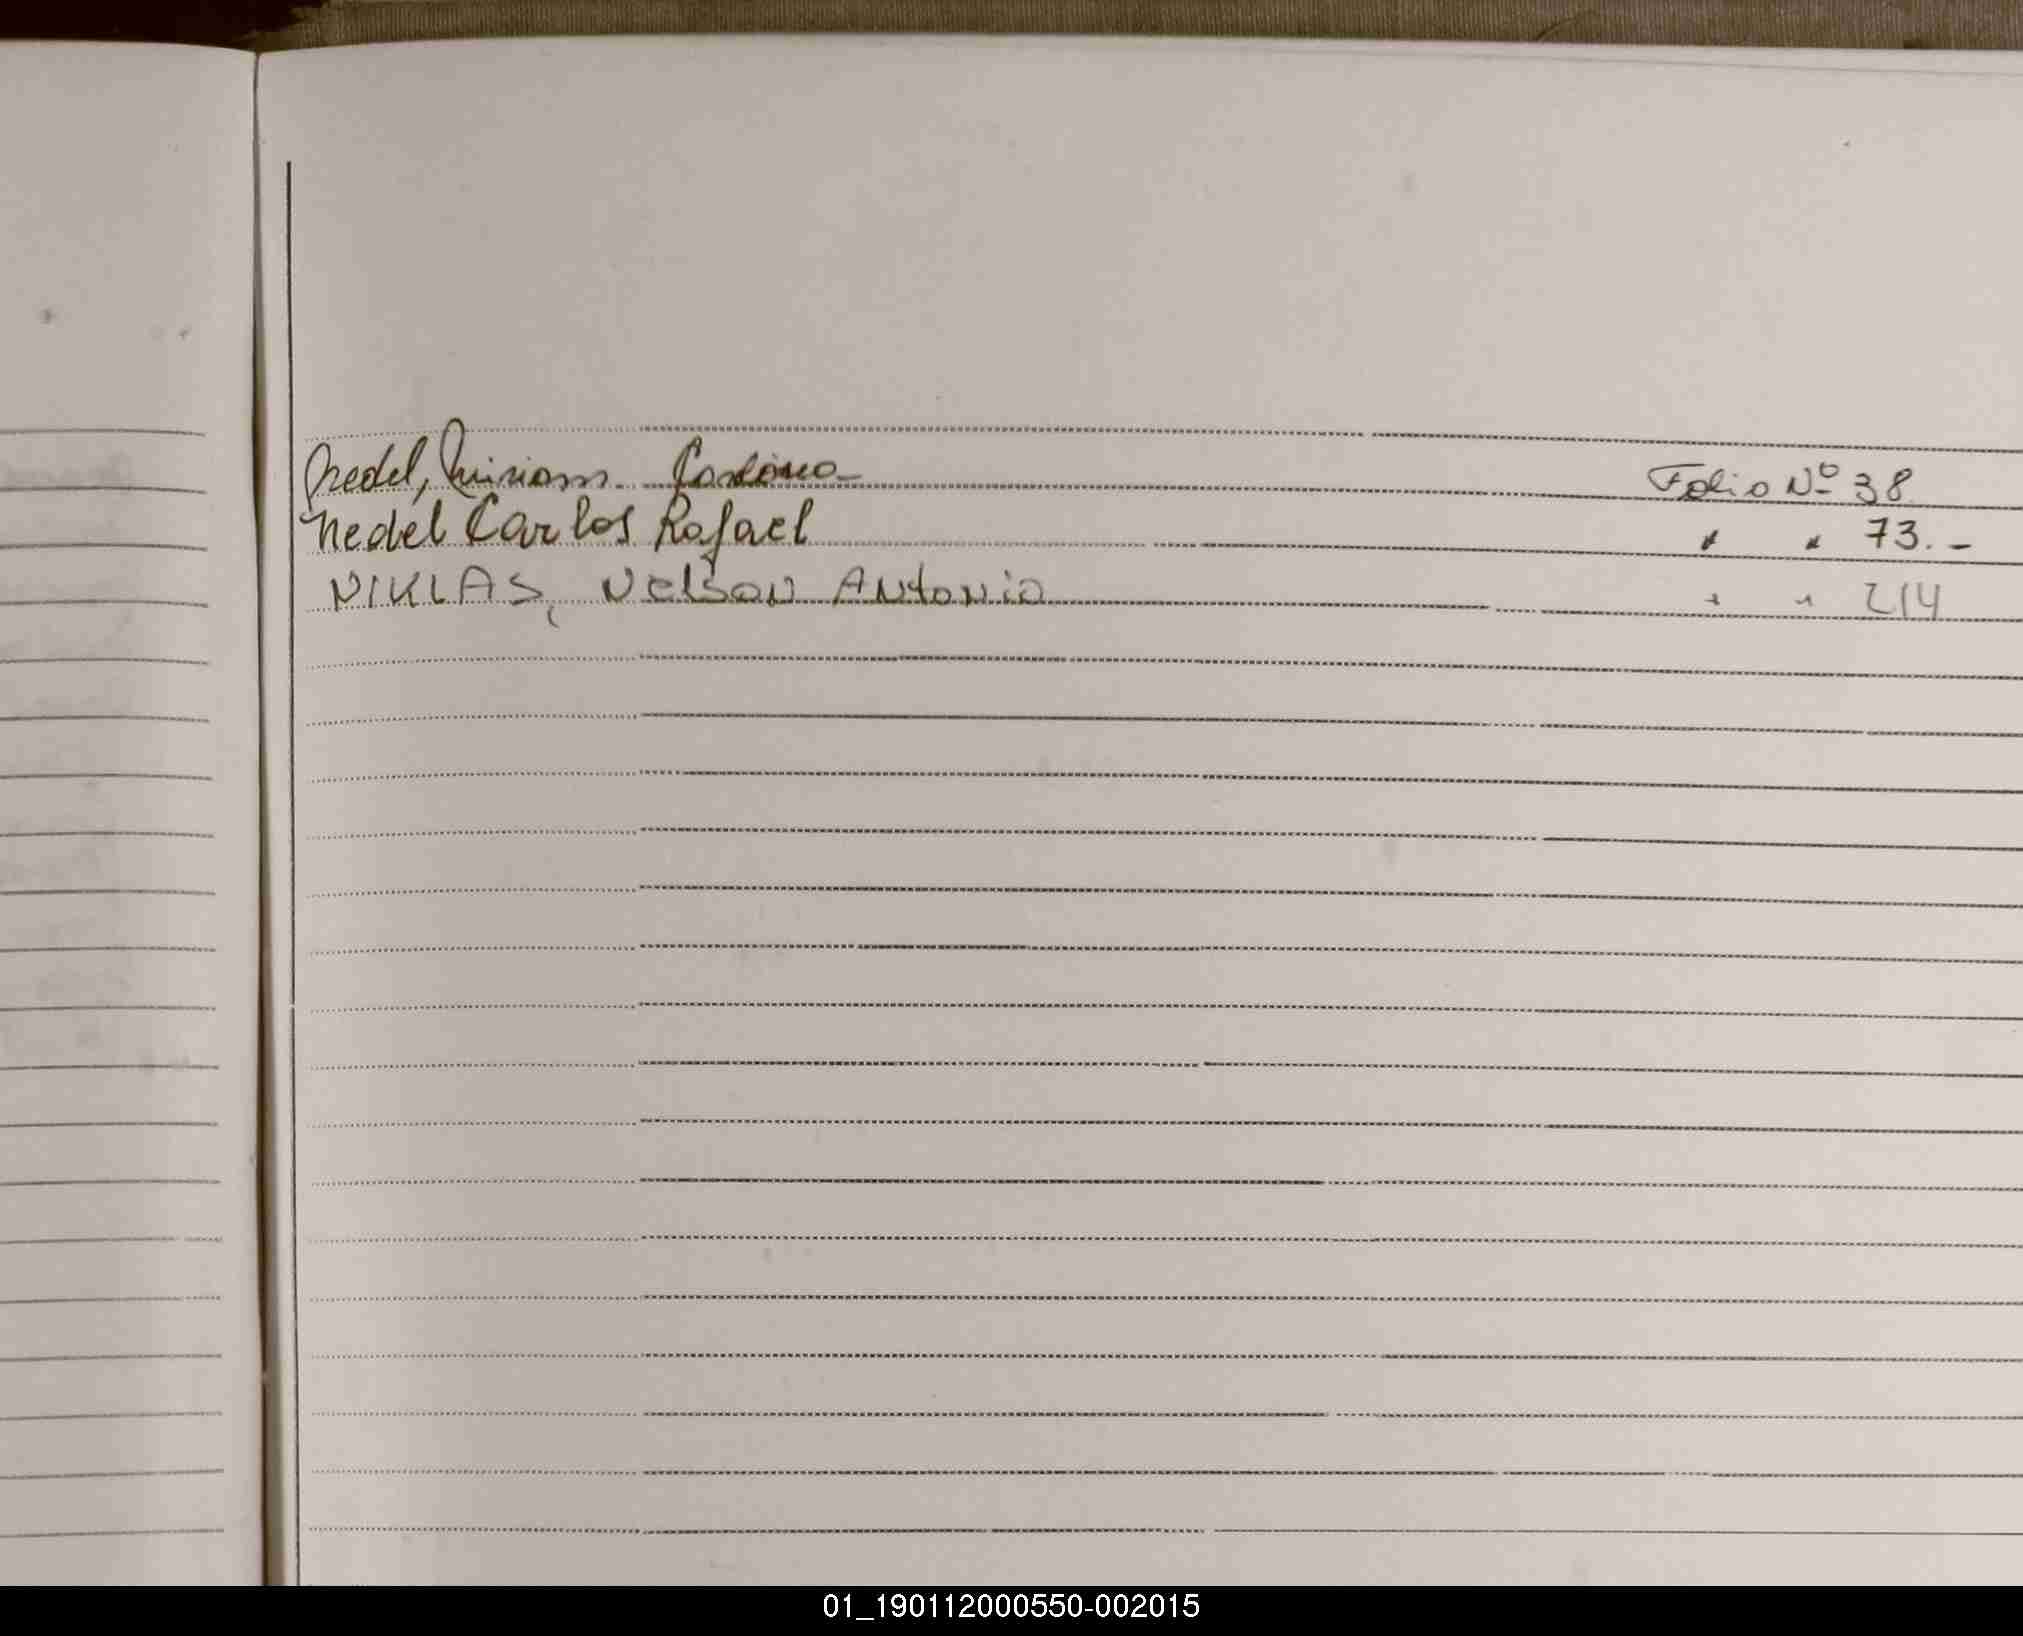 Nedel, Miriam Carolina - Folio Nº 38
Nedel Carlos Rafael " " 73.-
NIKLAS, Nelson Antonio " " 214
01_190112000550-002015